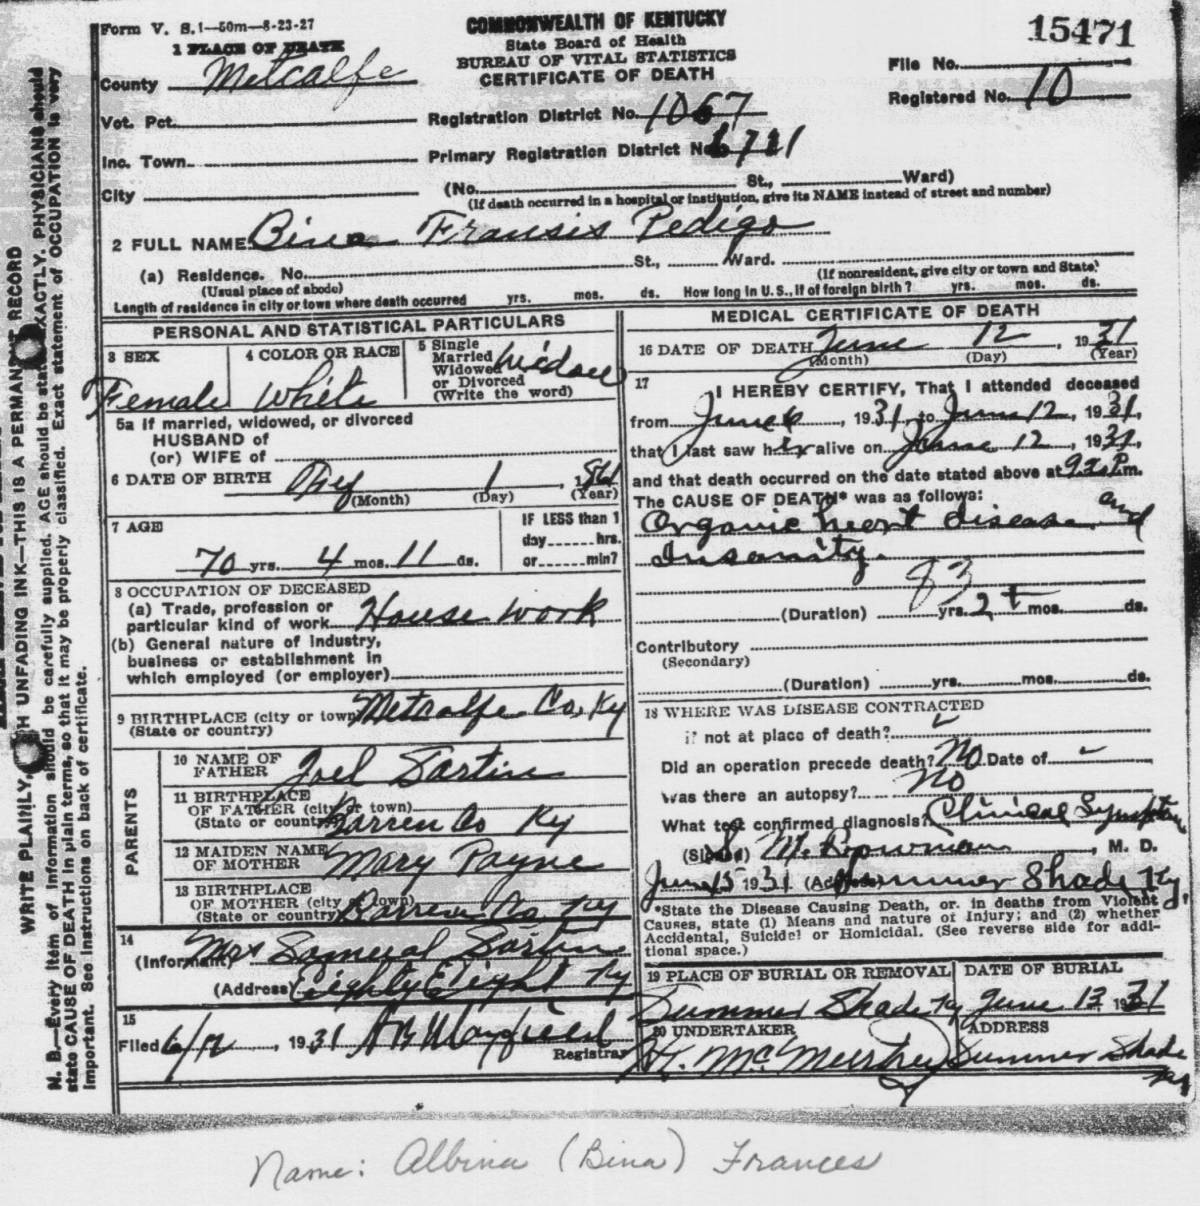 Form V. S. 1—50m—8-23-27
COMMONWEALTH OF KENTUCKY
State Board of Health
BUREAU OF VITAL STATISTICS
CERTIFICATE OF DEATH
15471
File No.
Registered No. 10
1 PLACE OF DEATH
County Metcalfe
Vot. Pct.
Inc. Town.
City
Registration District No. 1067
Primary Registration District No.
(No. St., Ward)
(If death occurred in a hospital or institution, give its NAME instead of street and number)
2 FULL NAME Bina Fransis Pedigo
(a) Residence. No. St., Ward.
(Usual place of abode)
(If nonresident, give city or town and State)
Length of residence in city or town where death occurred yrs. mos. ds. How long in U.S., if of foreign birth? yrs. mos. ds.
PERSONAL AND STATISTICAL PARTICULARS
3 SEX
Female
4 COLOR OR RACE
White
5 Single
Married
Widowed
or Divorced
(Write the word)
5a If married, widowed, or divorced
HUSBAND of
(or) WIFE of
6 DATE OF BIRTH 1
(Month) (Day) (Year)
7 AGE
70 yrs. 4 mos. 11 ds.
IF LESS than 1
day hrs.
or min?
8 OCCUPATION OF DECEASED
(a) Trade, profession or
particular kind of work House work
(b) General nature of industry,
business or establishment in
which employed (or employer)
9 BIRTHPLACE (city or town) Metcalfe Co, Ky
(State or country)
PARENTS
10 NAME OF
FATHER Joel Sartin
11 BIRTHPLACE
OF FATHER (city or town)
(State or country) Barren Co Ky
12 MAIDEN NAME
OF MOTHER Mary Payne
13 BIRTHPLACE
OF MOTHER (city or town)
(State or country) Barren Co, Ky
14
(Informant) Mrs Samual Sartin
(Address) Eighty Eight Ky
15
Filed 6/12, 1931
Registrar
MEDICAL CERTIFICATE OF DEATH
16 DATE OF DEATH June 12, 1931
(Month) (Day) (Year)
17
I HEREBY CERTIFY, That I attended deceased
from June 6, 1931, to June 12, 1931,
that I last saw her alive on June 12, 1931,
and that death occurred on the date stated above at P.m.
The CAUSE OF DEATH* was as follows:
Organic heart disease and
Insanity.
83
(Duration) yrs. 2 mos. ds.
Contributory
(Secondary)
(Duration) yrs. mos. ds.
18 WHERE WAS DISEASE CONTRACTED
if not at place of death?
Did an operation precede death? No. Date of
Was there an autopsy? No
What test confirmed diagnosis? Clinical Symptom
(Signed) S. M. Bowman, M. D.
June 15 1931 (Address) Summer Shade Ky.
*State the Disease Causing Death, or in deaths from Violent
Causes, state (1) Means and nature of Injury; and (2) whether
Accidental, Suicidal or Homicidal. (See reverse side for addi-
tional space.)
19 PLACE OF BURIAL OR REMOVAL
Summer Shade Ky
DATE OF BURIAL
June 13 1931
20 UNDERTAKER
ADDRESS
Summer Shade
Ky
WRITE PLAINLY, WITH UNFADING INK—THIS IS A PERMANENT RECORD
N. B.—Every item of information should be carefully supplied. AGE should be stated EXACTLY. PHYSICIANS should
state CAUSE OF DEATH in plain terms, so that it may be properly classified. Exact statement of OCCUPATION is very
important. See instructions on back of certificate.
Name: Albina (Bina) Frances